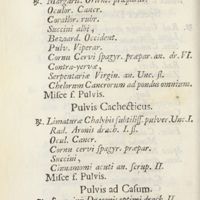 ℞. Margarit. Orient. præparat.
Oculor. Cancr.
Corallor. rubr.
Succini albi,
Bezoard. Occident.
Pulv. Viperar.
Cornu Cervi spagyr. præpar. an. dr. VI.
Contra-yervæ,
Serpentariæ Virgin. an. Unc. ß.
Chelarum Cancrorum ad pondus omnium.
Misce f. Pulvis.
Pulvis Cachecticus.
℞. Limaturæ Chalybis subtiliss. pulver. Unc. I.
Rad. Aronis drach. I. ß.
Ocul. Cancr.
Cornu cervi spagyr. præpar.
Succini,
Cinnamomi acuti an. scrup. II.
Misce f. Pulvis.
Pulvis ad Casum.